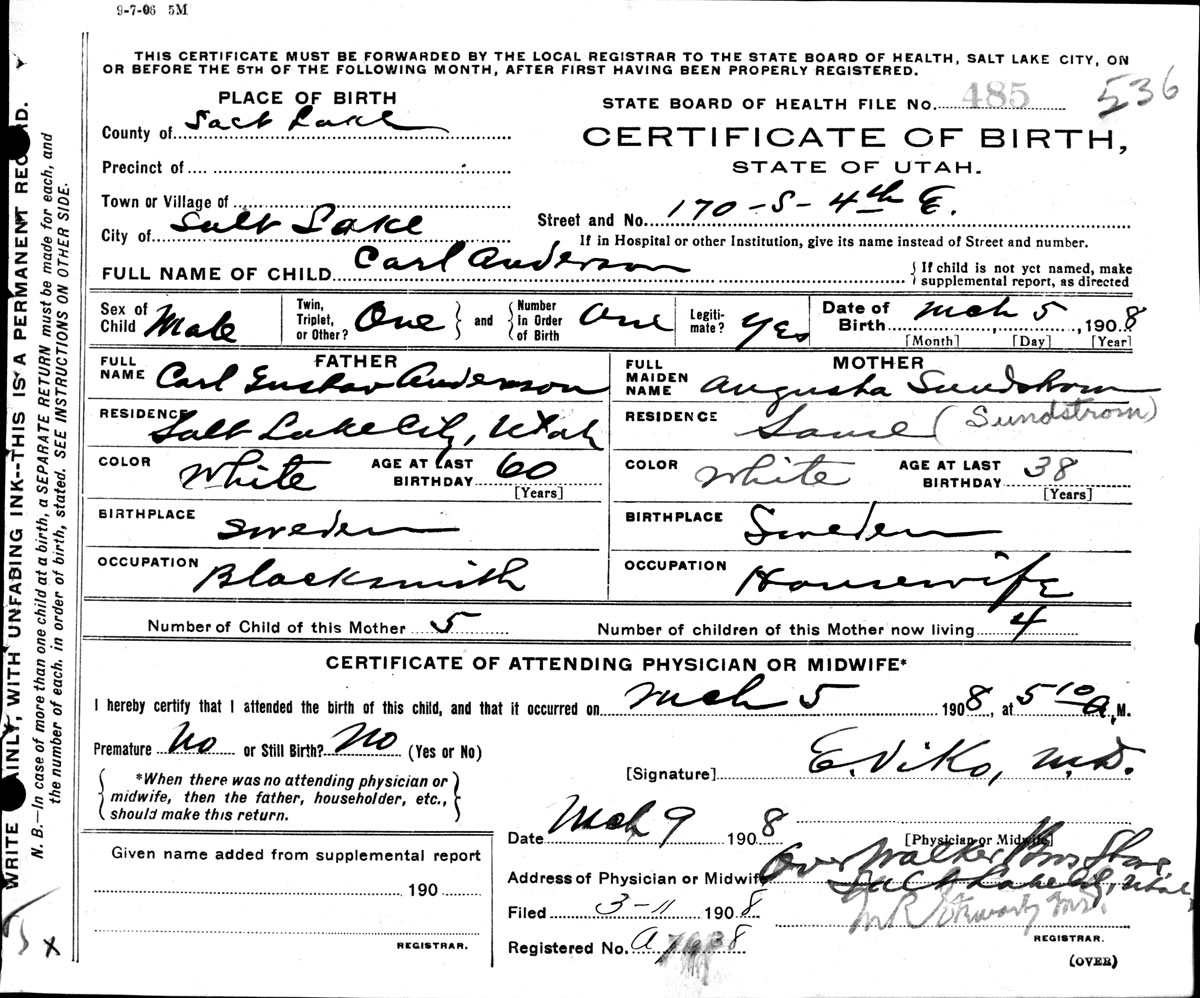 9-7-06 5M
THIS CERTIFICATE MUST BE FORWARDED BY THE LOCAL REGISTRAR TO THE STATE BOARD OF HEALTH, SALT LAKE CITY, ON
OR BEFORE THE 5TH OF THE FOLLOWING MONTH, AFTER FIRST HAVING BEEN PROPERLY REGISTERED.
PLACE OF BIRTH
County of Salt Lake
Precinct of
Town or Village of
City of Salt Lake
STATE BOARD OF HEALTH FILE No. 485 536
CERTIFICATE OF BIRTH,
STATE OF UTAH.
Street and No. 170 - S - 4th E.
If in Hospital or other Institution, give its name instead of Street and number.
FULL NAME OF CHILD Carl Anderson
If child is not yet named, make
supplemental report, as directed
Sex of Child Male
Twin, Triplet, or Other? One and Number In Order of Birth One
Legiti-mate? Yes
Date of Birth Mch 5, 1908
[Month] [Day] [Year]
FATHER
FULL NAME Carl Gustav Anderson
RESIDENCE Salt Lake City, Utah
COLOR White AGE AT LAST BIRTHDAY 60
[Years]
BIRTHPLACE Sweden
OCCUPATION Blacksmith
MOTHER
FULL MAIDEN NAME Augusta Sundstrom
RESIDENCE Same (Sundstrom)
COLOR White AGE AT LAST BIRTHDAY 38
[Years]
BIRTHPLACE Sweden
OCCUPATION Housewife
Number of Child of this Mother 5 Number of children of this Mother now living 4
CERTIFICATE OF ATTENDING PHYSICIAN OR MIDWIFE*
I hereby certify that I attended the birth of this child, and that it occurred on Mch 5 1908, at 5 10 A. M.
Premature No or Still Birth? No (Yes or No)
*When there was no attending physician or
midwife, then the father, householder, etc.,
should make this return.
[Signature] E. Viko, M.D.
[Physician or Midwife]
Date Mch 9 1908
Address of Physician or Midwife Over Walker Bros Store
Salt Lake City, Utah
Filed 3-11 1908
REGISTRAR.
Registered No. A
(OVER)
Given name added from supplemental report
190
REGISTRAR.
X
WRITE PLAINLY, WITH UNFADING INK--THIS IS A PERMANENT RECORD.
N. B.—In case of more than one child at a birth, a SEPARATE RETURN must be made for each, and
the number of each, in order of birth, stated. SEE INSTRUCTIONS ON OTHER SIDE.